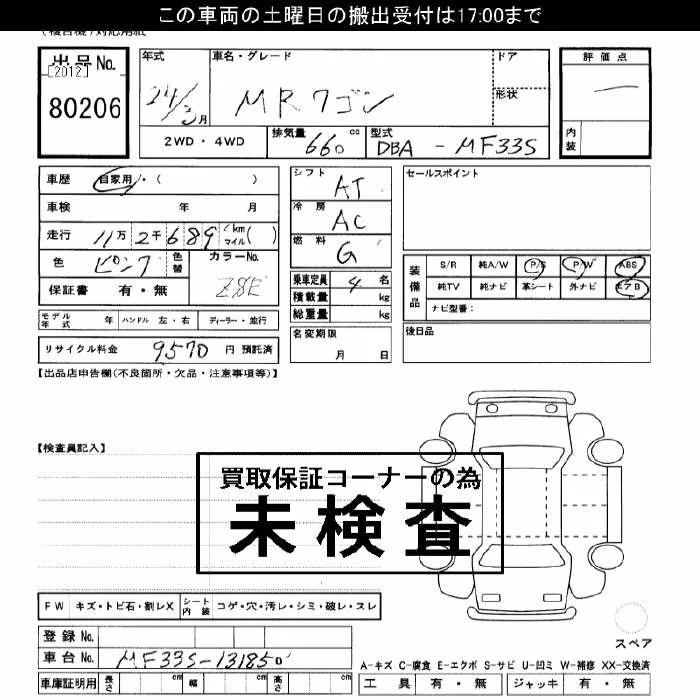 この車両の土曜日の搬出受付は17:00まで
出品No. 年式 車名・グレード ドア 評価点
[2012]
80206 24/3月 MRワゴン 形状 ー
2WD・4WD 排気量 660 cc 型式 DBA - MF33S 内装
車歴 自家用・( ) シフト AT セールスポイント
車検 年 月 冷房 AC
走行 11万2千689 km マイル( ) 燃料 G
色 ピンク 色替 カラーNo. Z8E 装備品 S/R 純A/W P/S P/W ABS
保証書 有・無 乗車定員 4 名 純TV 純ナビ 革シート 外ナビ エアB
積載量 kg ナビ型番:
モデル年式 年 ハンドル 左・右 ディーラー・並行 総重量 kg
リサイクル料金 9570 円 預託済 名変期限 月 日 後日品
【出品店申告欄(不良箇所・欠品・注意事項等)】
【検査員記入】
買取保証コーナーの為
未検査
FW キズ・トビ石・割レX シート内装 コゲ・穴・汚レ・シミ・破レ・スレ
スペア
登録No.
車台No. MF33S-131850
A-キズ C-腐食 E-エクボ S-サビ U-凹ミ W-補修 XX-交換済
車庫証明用 長さ cm 幅 cm 高さ cm 工具 有・無 ジャッキ 有・無